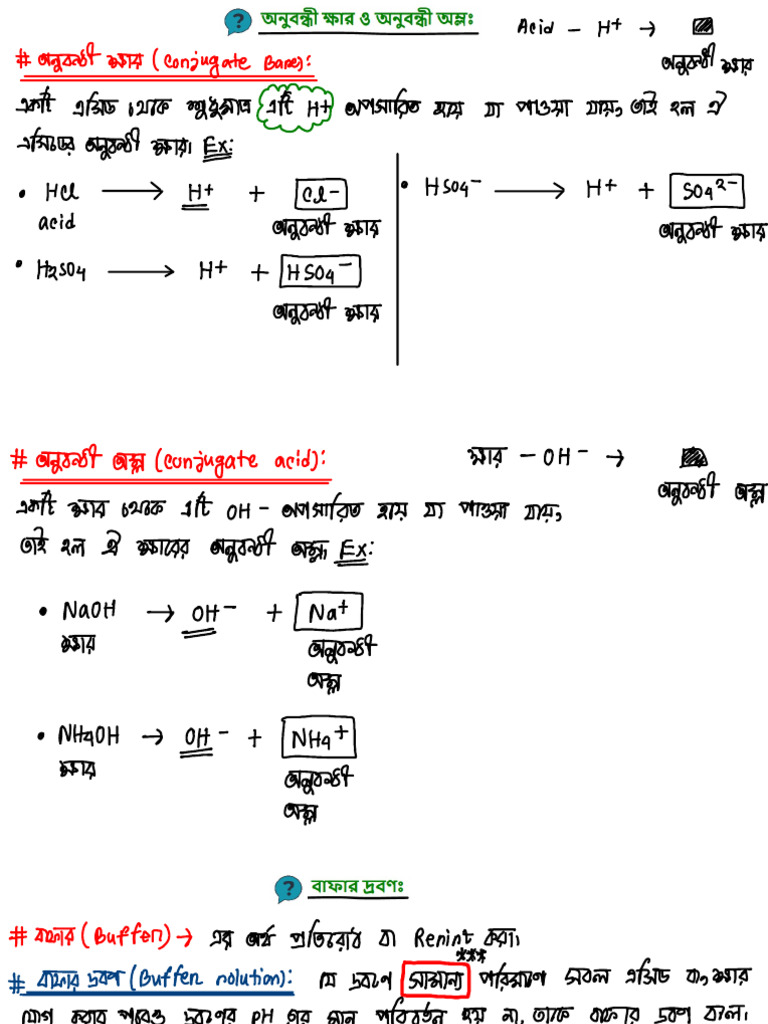 অনুবন্ধী ক্ষার ও অনুবন্ধী অম্লঃ
Acid – H+ →
অনুবন্ধী ক্ষার
# অনুবন্ধী ক্ষার (Conjugate Base):
একটি এসিড থেকে শুধুমাত্র ১টি H+ অপসারিত হয়ে যা পাওয়া যায়, তাই হল ঐ
এসিডের অনুবন্ধী ক্ষার। Ex:
• HCl → H+ + Cl-
acid অনুবন্ধী ক্ষার
• H2SO4 → H+ + HSO4-
অনুবন্ধী ক্ষার
• HSO4- → H+ + SO4 2-
অনুবন্ধী ক্ষার
# অনুবন্ধী অম্ল (Conjugate acid):
ক্ষার – OH- →
অনুবন্ধী অম্ল
একটি ক্ষার থেকে ১টি OH- অপসারিত হয়ে যা পাওয়া যায়,
তাই হল ঐ ক্ষারের অনুবন্ধী অম্ল Ex:
• NaOH → OH- + Na+
ক্ষার অনুবন্ধী
অম্ল
• NH4OH → OH- + NH4+
ক্ষার অনুবন্ধী
অম্ল
বাফার দ্রবণঃ
# বাফার (Buffer) → এর অর্থ প্রতিরোধ বা Resist করা।
# বাফার দ্রবণ (Buffer solution): যে দ্রবণে সামান্য পরিমাণে সবল এসিড বা ক্ষার
যোগ করার পরেও দ্রবণের pH এর মান পরিবর্তন হয় না, তাকে বাফার দ্রবণ বলে।